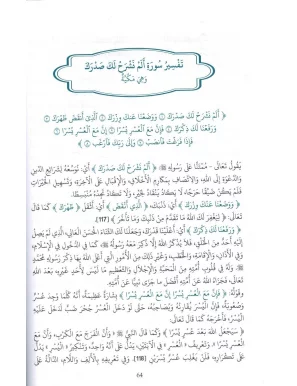 تَفْسِيرُ سُورَةِ أَلَمْ نَشْرَحْ لَكَ صَدْرَكَ
وَهِيَ مَكِّيَّةٌ
﴿ أَلَمْ نَشْرَحْ لَكَ صَدْرَكَ ۝ وَوَضَعْنَا عَنكَ وِزْرَكَ ۝ الَّذِي أَنقَضَ ظَهْرَكَ ۝
وَرَفَعْنَا لَكَ ذِكْرَكَ ۝ فَإِنَّ مَعَ الْعُسْرِ يُسْرًا ۝ إِنَّ مَعَ الْعُسْرِ يُسْرًا ۝
فَإِذَا فَرَغْتَ فَانصَبْ ۝ وَإِلَى رَبِّكَ فَارْغَب ۝ ﴾
يَقُولُ تَعَالَى - مُمْتَنًّا عَلَى رَسُولِهِ ﷺ - ﴿ أَلَمْ نَشْرَحْ لَكَ صَدْرَكَ ﴾ أَيْ: نُوَسِّعْهُ لِشَرَائِعِ الدِّينِ
وَالدَّعْوَةِ إِلَى اللهِ، وَالِاتِّصَافِ بِمَكَارِمِ الْأَخْلَاقِ، وَالْإِقْبَالِ عَلَى الْآخِرَةِ، وَتَسْهِيلِ الْخَيْرَاتِ
فَلَمْ يَكُنْ ضَيِّقًا حَرَجًا، لَا يَكَادُ يَنْقَادُ لِخَيْرٍ، وَلَا تَكَادُ تَجِدُهُ مُنْبَسِطًا.
﴿ وَوَضَعْنَا عَنكَ وِزْرَكَ ﴾ أَيْ: ذَنْبَكَ، ﴿ الَّذِي أَنقَضَ ﴾ أَيْ: أَثْقَلَ ﴿ ظَهْرَكَ ﴾ كَمَا قَالَ
تَعَالَى: لِيَغْفِرَ لَكَ اللهُ مَا تَقَدَّمَ مِنْ ذَنْبِكَ وَمَا تَأَخَّرَ ﴾. [117]
﴿ وَرَفَعْنَا لَكَ ذِكْرَكَ ﴾ أَيْ: أَعْلَيْنَا قَدْرَكَ، وَجَعَلْنَا لَكَ الثَّنَاءَ الْحَسَنَ الْعَالِيَ، الَّذِي لَمْ يَصِلْ
إِلَيْهِ أَحَدٌ مِنَ الْخَلْقِ، فَلَا يُذْكَرُ اللهُ إِلَّا ذُكِرَ مَعَهُ رَسُولُهُ ﷺ، كَمَا فِي الدُّخُولِ فِي الْإِسْلَامِ،
وَفِي الْأَذَانِ، وَالْإِقَامَةِ، وَالْخُطَبِ، وَغَيْرِ ذَلِكَ مِنَ الْأُمُورِ الَّتِي أَعْلَى اللهُ بِهَا ذِكْرَ رَسُولِهِ مُحَمَّدٍ ﷺ.
وَلَهُ فِي قُلُوبِ أُمَّتِهِ مِنَ الْمَحَبَّةِ وَالْإِجْلَالِ وَالتَّعْظِيمِ مَا لَيْسَ لِأَحَدٍ غَيْرِهِ، بَعْدَ اللهِ
تَعَالَى، فَجَزَاهُ اللهُ عَنْ أُمَّتِهِ أَفْضَلَ مَا جَزَى نَبِيًّا عَنْ أُمَّتِهِ.
وَقَوْلُهُ: ﴿ فَإِنَّ مَعَ الْعُسْرِ يُسْرًا ۝ إِنَّ مَعَ الْعُسْرِ يُسْرًا ﴾ بِشَارَةٌ عَظِيمَةٌ، أَنَّهُ كُلَّمَا وُجِدَ عُسْرٌ
وَصُعُوبَةٌ، فَإِنَّ الْيُسْرَ يُقَارِنُهُ وَيُصَاحِبُهُ، حَتَّى لَوْ دَخَلَ الْعُسْرُ جُحْرَ ضَبٍّ لَدَخَلَ عَلَيْهِ
الْيُسْرُ، فَأَخْرَجَهُ كَمَا قَالَ تَعَالَى:
﴿ سَيَجْعَلُ اللهُ بَعْدَ عُسْرٍ يُسْرًا ﴾ وَكَمَا قَالَ النَّبِيُّ ﷺ: وَأَنَّ الْفَرَجَ مَعَ الْكَرْبِ، وَأَنَّ
مَعَ الْعُسْرِ يُسْرًا. وَتَعْرِيفُ «الْعُسْرِ» فِي الْآيَتَيْنِ، يَدُلُّ عَلَى أَنَّهُ وَاحِدٌ، وَتَنْكِيرُ «الْيُسْرِ» يَدُلُّ
عَلَى تَكْرَارِهِ، فَلَنْ يَغْلِبَ عُسْرٌ يُسْرَيْنِ. [118] وَفِي تَعْرِيفِهِ بِالْأَلِفِ وَاللَّامِ، الدَّالَّةِ عَلَى
64